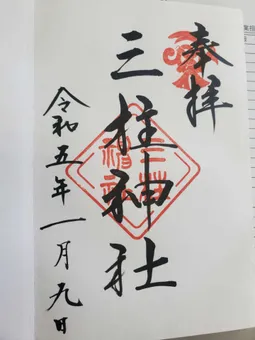 奉拝
三柱神社
令和五年一月九日